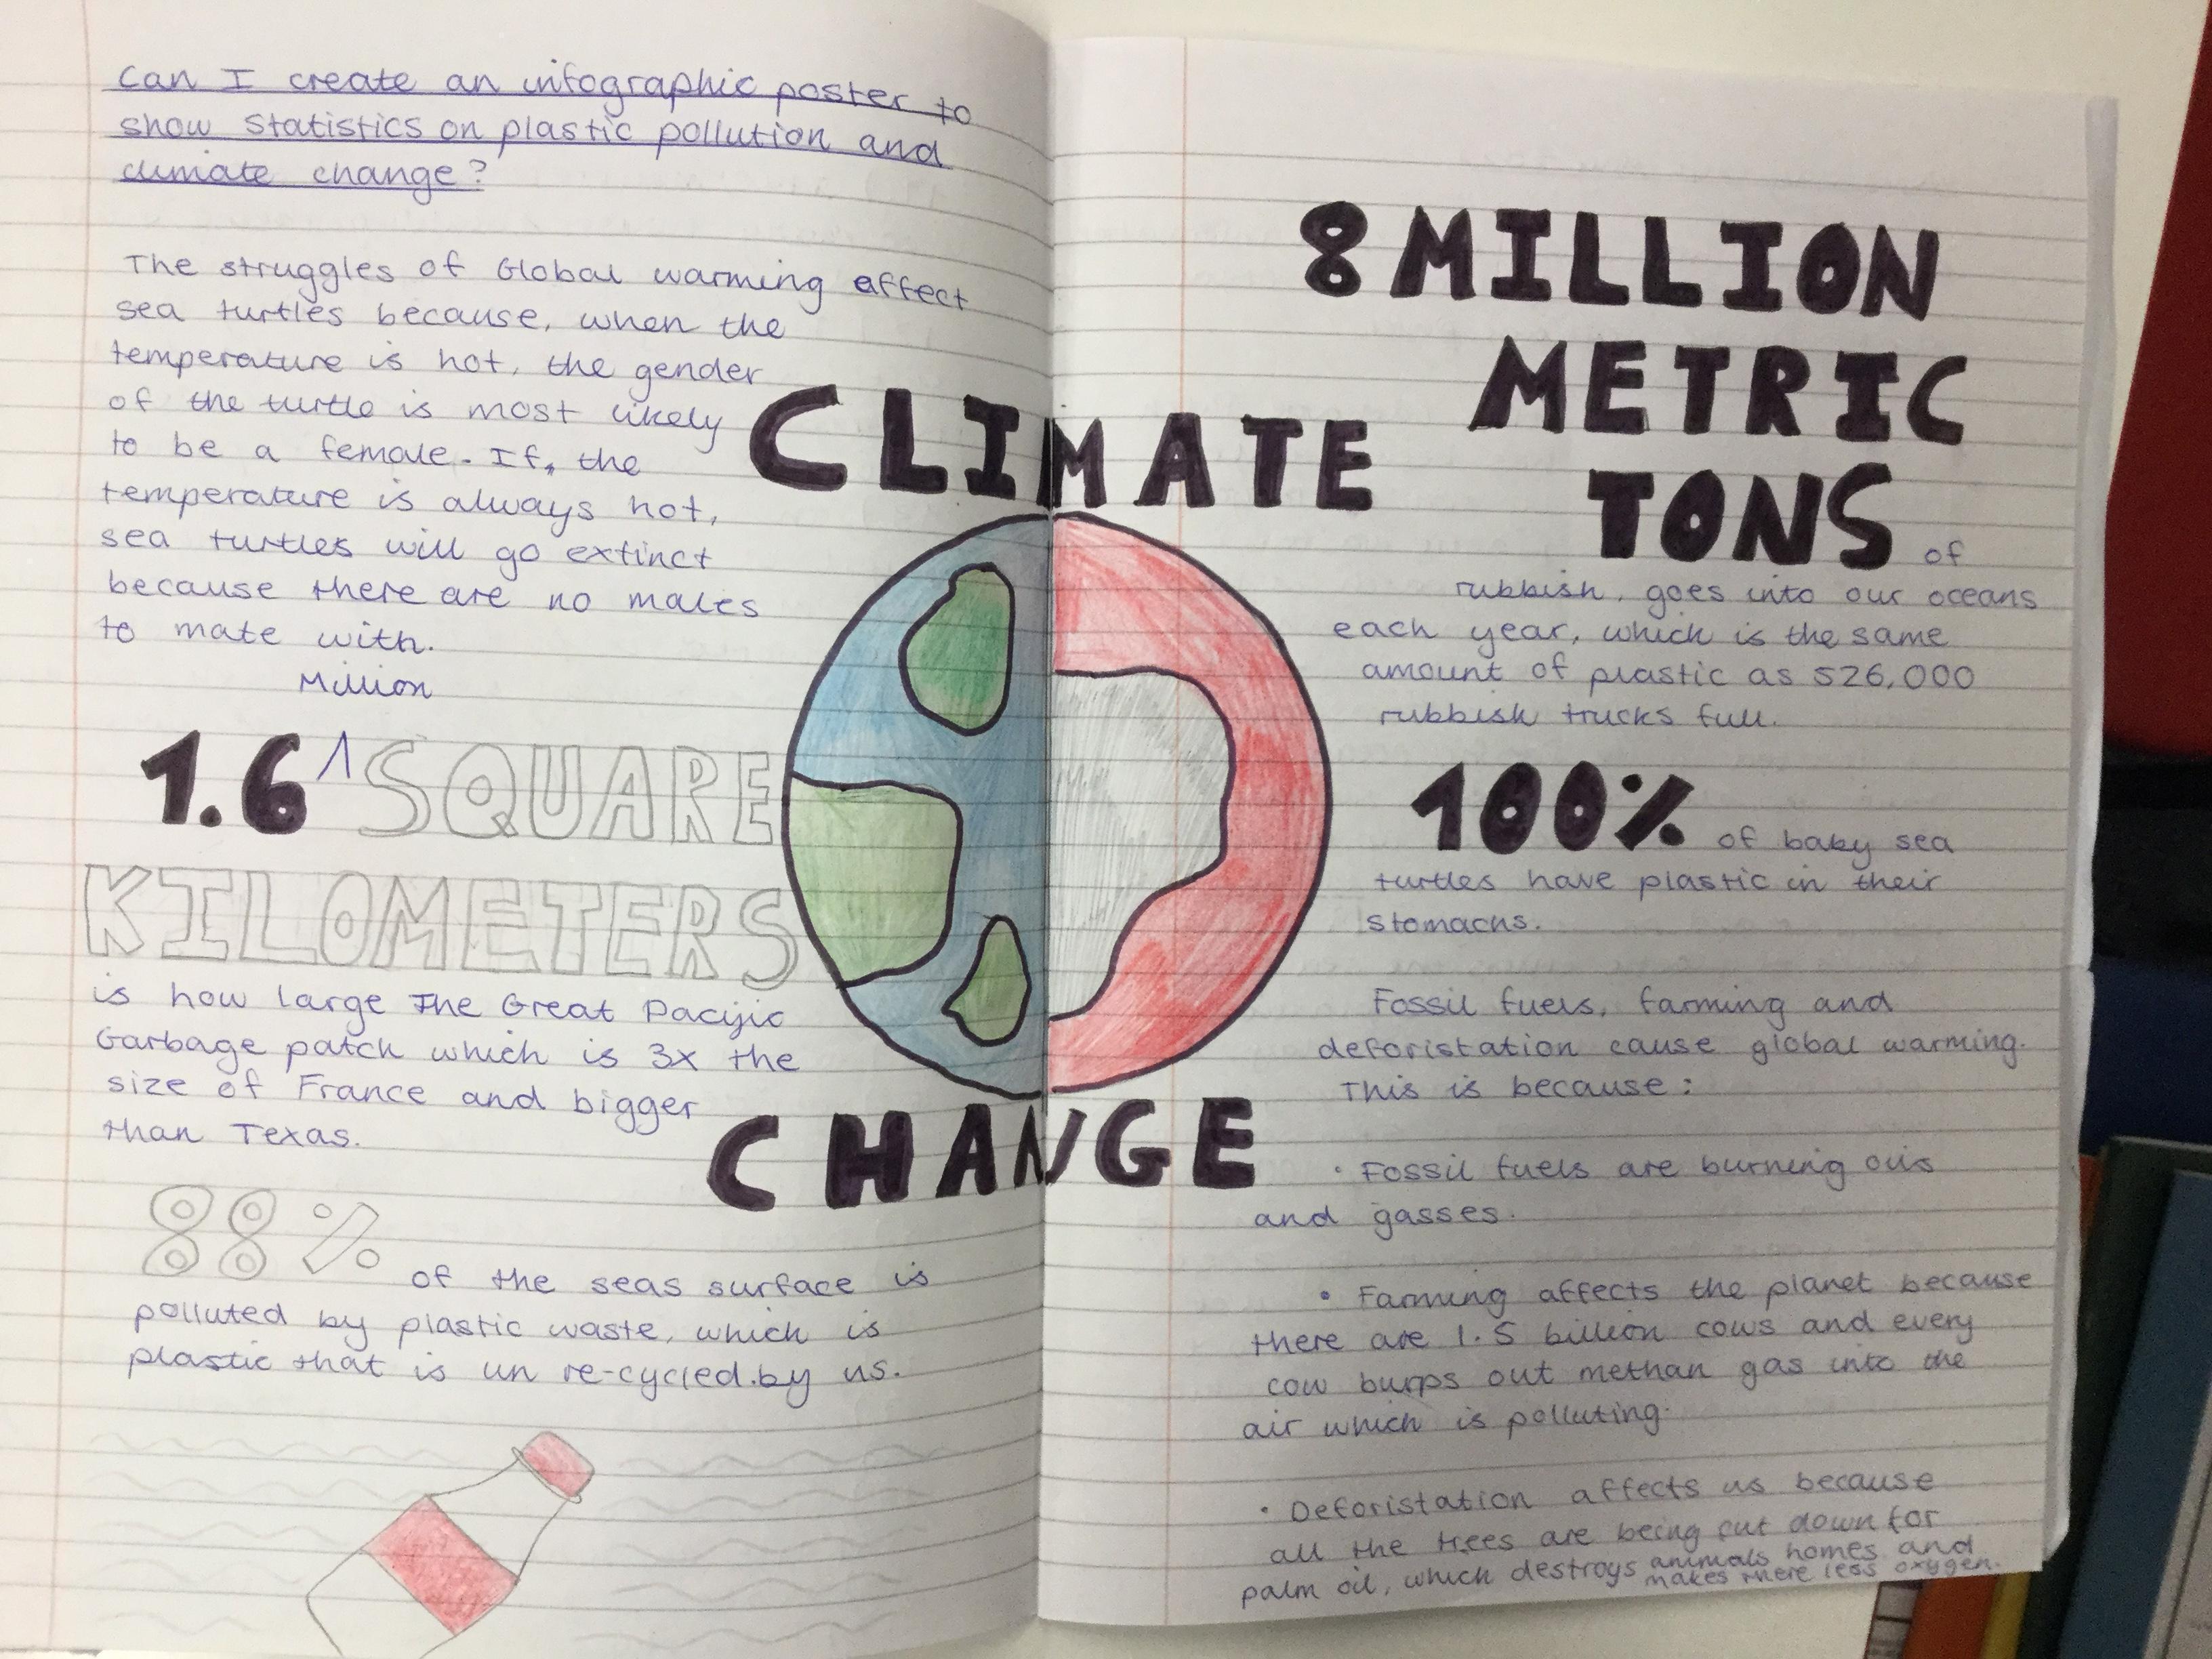 Can I create an infographic poster to
show statistics on plastic pollution and
climate change?
The struggles of Global warming affect
sea turtles because, when the
temperature is hot, the gender
of the turtle is most likely
to be a female. If, the
temperature is always hot,
sea turtles will go extinct
because there are no males
to mate with.
Million
1.6 ^ SQUARE
KILOMETERS
is how large The Great Pacific
Garbage patch which is 3x the
size of France and bigger
than Texas.
88%
of the seas surface is
polluted by plastic waste, which is
plastic that is un re-cycled.by us.
CLIMATE
CHANGE
8 MILLION
METRIC
TONS of
rubbish, goes into our oceans
each year, which is the same
amount of plastic as 526,000
rubbish trucks full.
100% of baby sea
turtles have plastic in their
stomachs.
Fossil fuels, farming and
deforistation cause global warming.
This is because:
• Fossil fuels are burning oils
and gasses.
• Farming affects the planet because
there are 1.5 billion cows and every
cow burps out methan gas into the
air which is polluting.
• Deforistation affects us because
all the trees are being cut down for
palm oil, which destroys animals homes and
makes there less oxygen.